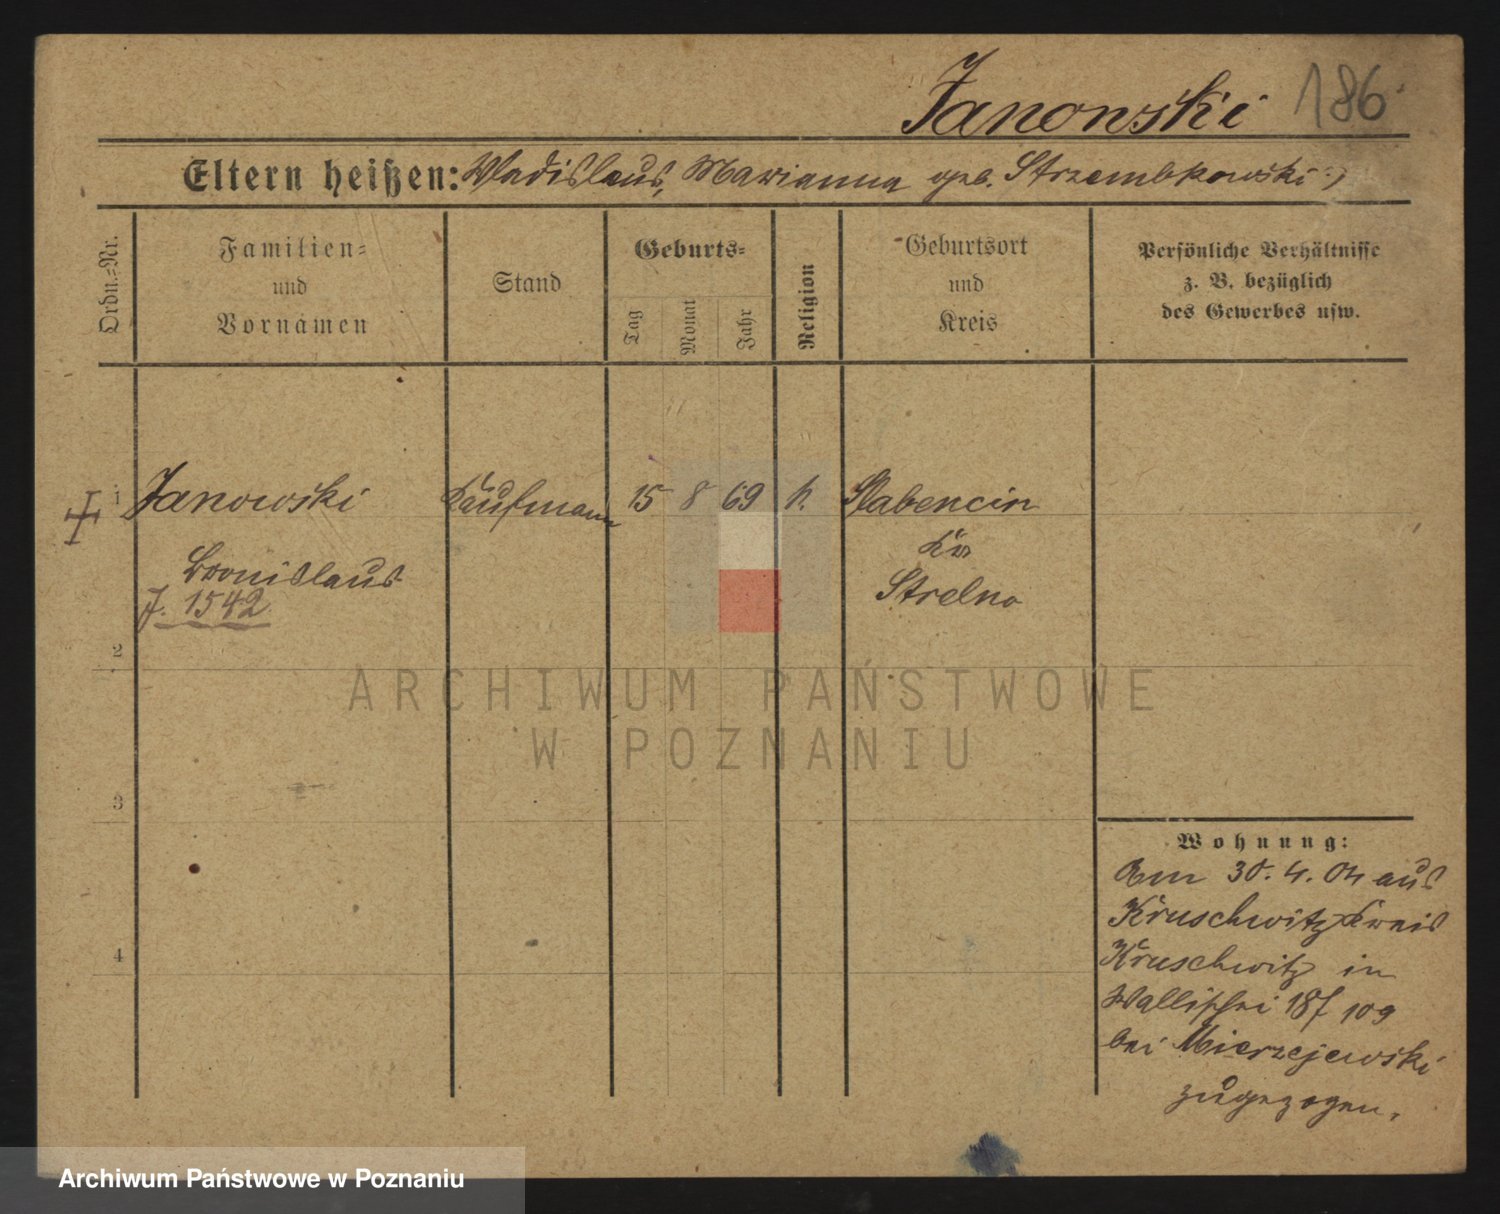 Janowski 186
Eltern heißen: Wladislaus, Marianna geb. Strzembkowski
Ordn.=Nr.
Familien=
und
Vornamen
Stand
Geburts=
Tag
Monat
Jahr
Religion
Geburtsort
und
Kreis
Persönliche Verhältnisse
z. B. bezüglich
des Gewerbes usw.
1 Janowski Kaufmann 15 8 69 k. Slabencin
Kr
Bronislaus Strelno
J. 1542
2
ARCHIWUM PAŃSTWOWE
W POZNANIU
3
Wohnung:
Am 30. 4. 04 aus
Kruschwitz Kreis
4 Kruschwitz in
Wallischei 109
bei Mierzejewski
zugezogen.
Archiwum Państwowe w Poznaniu